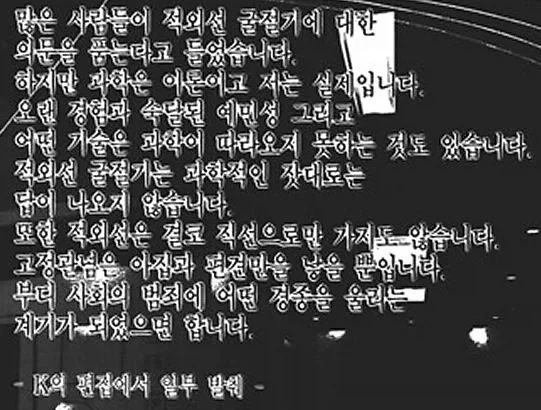 많은 사람들이 적외선 굴절기에 대한
의문을 품는다고 들었습니다.
하지만 과학은 이론이고 저는 실제입니다.
오랜 경험과 숙달된 예민성 그리고
어떤 기술은 과학이 따라오지 못하는 것도 있습니다.
적외선 굴절기는 과학적인 잣대로는
답이 나오지 않습니다.
또한 적외선은 결코 직선으로만 가지도 않습니다.
고정관념은 아집과 편견만을 낳을 뿐입니다.
부디 사회의 범죄에 어떤 경종을 울리는
계기가 되었으면 합니다.
- K의 편집에서 일부 발췌 -